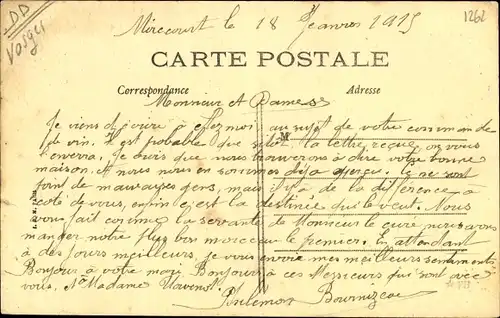 DD
Vosges
1262
Mirecourt le 18 Janvier 1915
CARTE POSTALE
Correspondance
Adresse
Monsieur et Dames
Je viens de au sujet de votre commande
de vin. Il est probable que la lettre reçue on vous
enverra. Je crois que nous trouverons à dire votre bonne
maison. et nous nous en sommes déjà aperçu. Ce ne sont
point de mauvaises gens, mais il y a de la différence a
coté de vous, enfin c'est la destinée qui le veut. Nous
avons fait comme la servante de Monsieur le curé nous avons
manger notre plus bon morceau le premier. En attendant
a des jours meilleurs, je vous envoie mes meilleurs sentiments
Bonjour à votre mari Bonjour à ces Messieurs qui sont avec
vous. Madame
Philemon